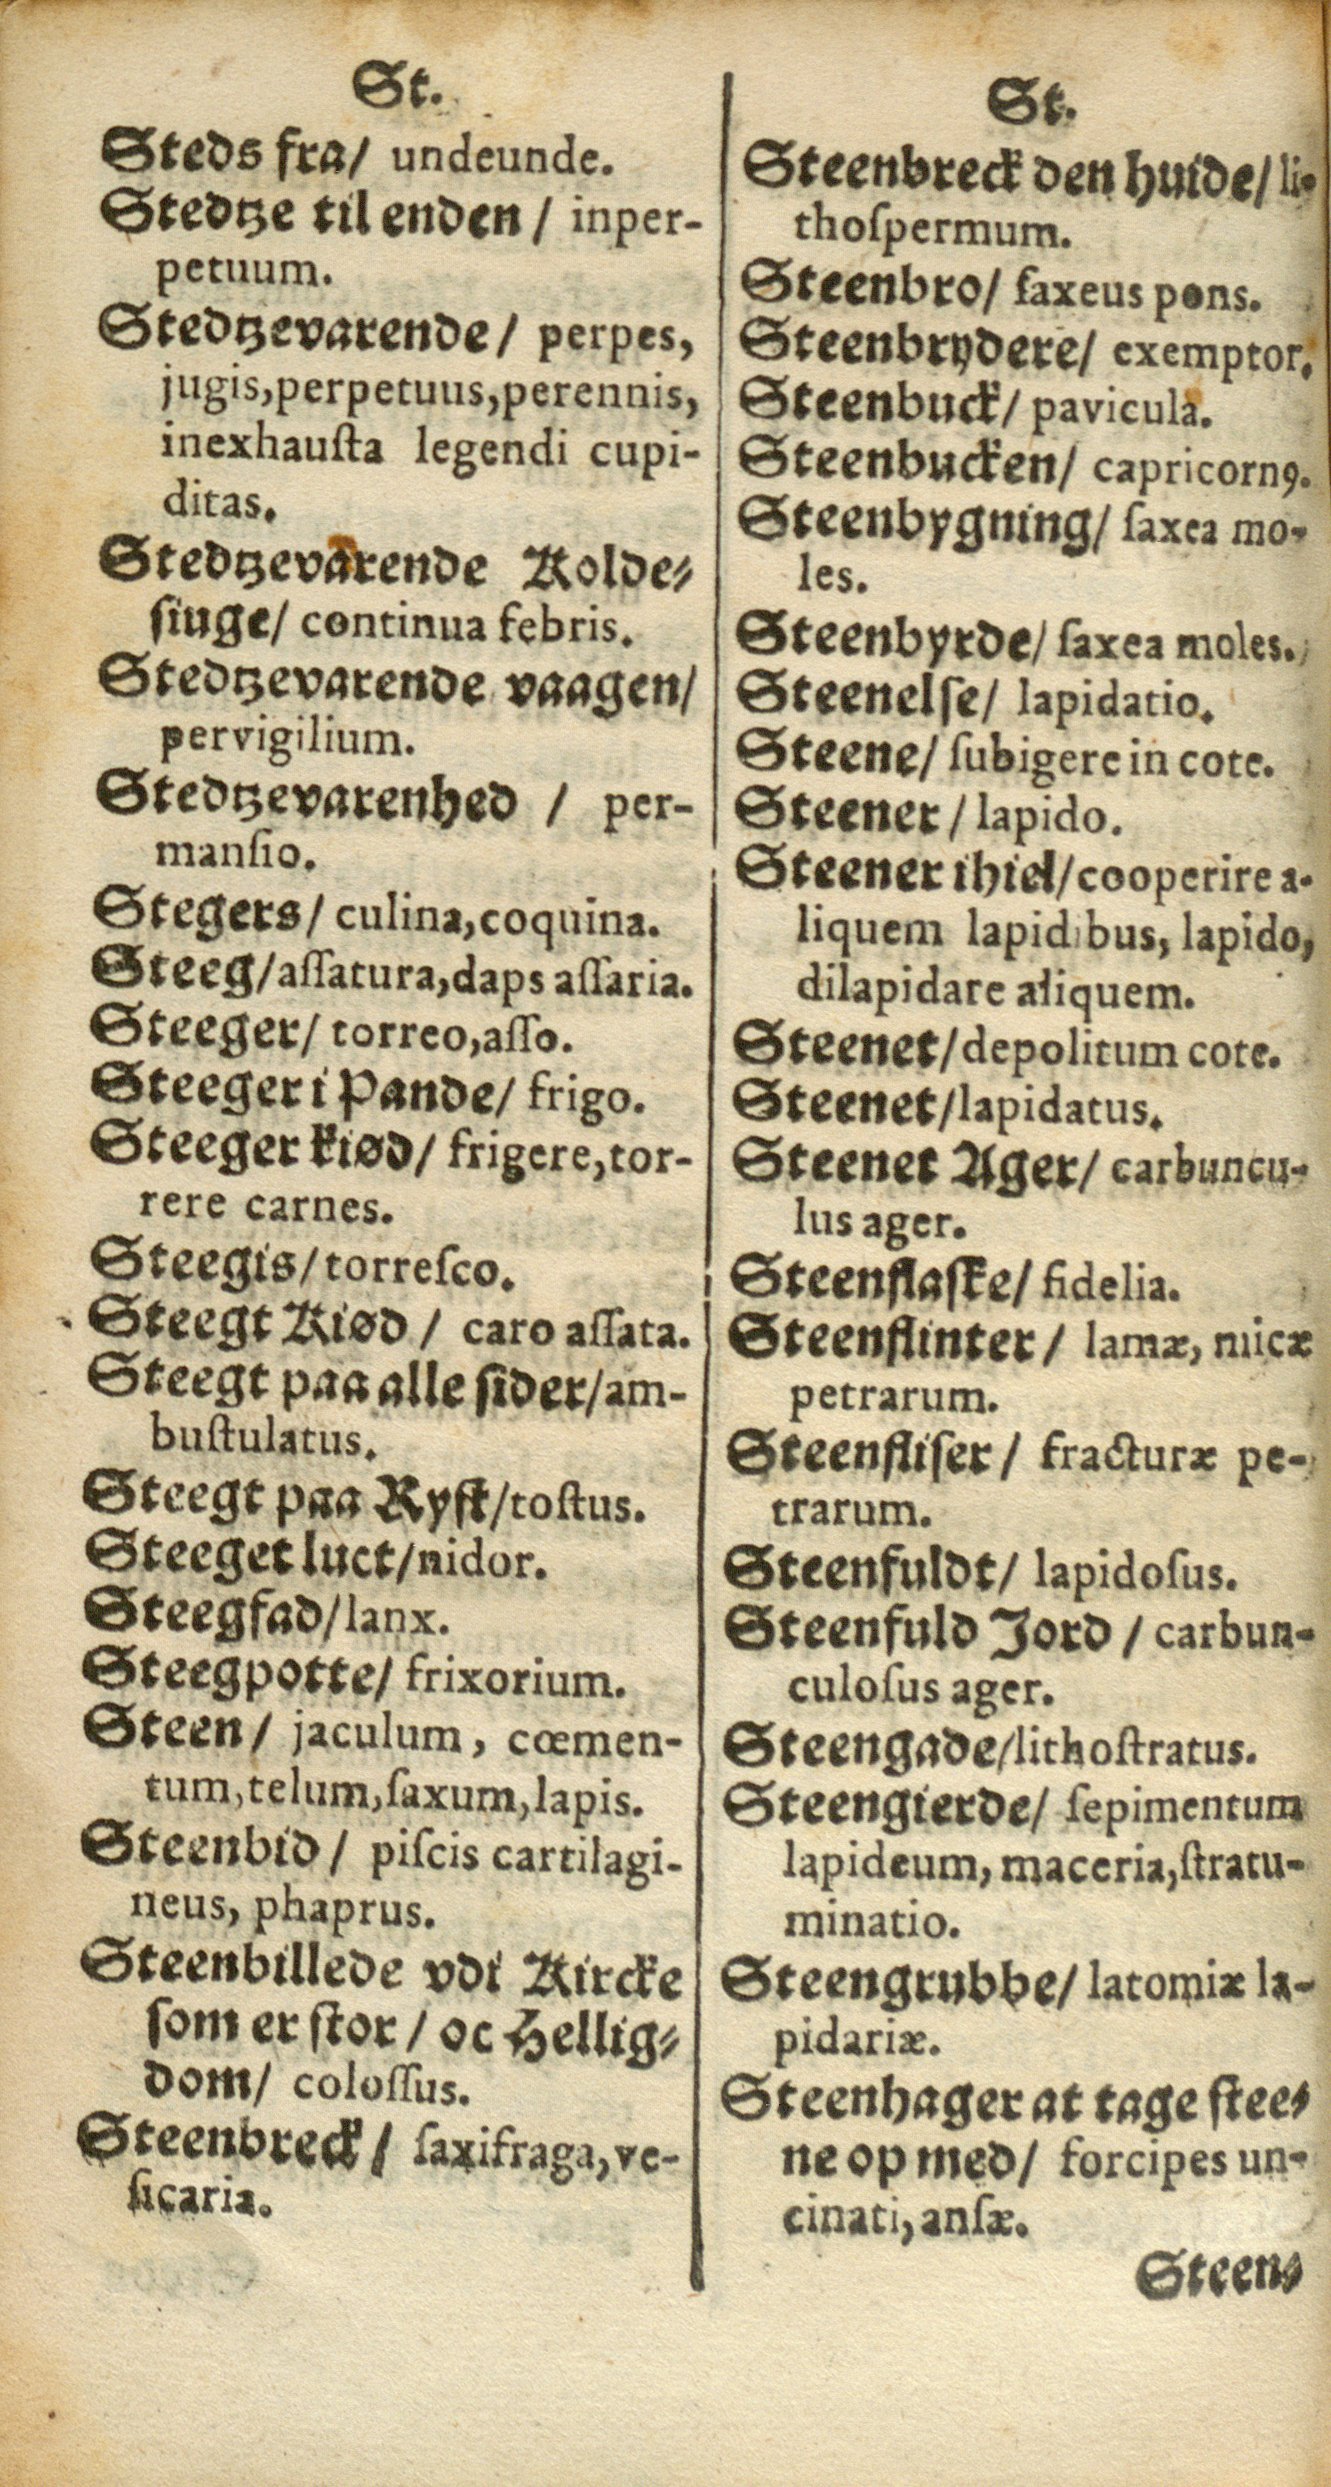 St.
Steds fra/ undeunde.
Stedtze til enden / inper-
petuum.
Stedtzevarende/ perpes,
jugis,perpetuus,perennis,
inexhauſta legendi cupi-
ditas.
Stedtzevarende Kolde⸗
ſiuge/ continua febris.
Stedtzevarende vaagen/
pervigilium.
Stedtzevarenhed / per-
manſio.
Stegers/ culina,coquina.
Steeg/aſſatura,daps aſſaria.
Steeger/ torreo,aſſo.
Steeger i Pande/ frigo.
Steeger kiød/ frigere,tor-
rere carnes.
Steegis/torreſco.
Steegt Kiød / caro aſſata.
Steegt paa alle ſider/am-
buſtulatus.
Steegt paa Ryſt/toſtus.
Steeget luct/nidor.
Steegfad/lanx.
Steegpotte/ frixorium.
Steen/ jaculum, cœmen-
tum,telum,ſaxum,lapis.
Steenbid/ piſcis cartilagi-
neus, phaprus.
Steenbillede vdi Kircke
ſom er ſtor/ oc Hellig⸗
dom/ coloſſus.
Steenbreck/ ſaxifraga,ve-
ſicaria.
St.
Steenbreck den huide/ li-
thoſpermum.
Steenbro/ ſaxeus pons.
Steenbrydere/ exemptor.
Steenbuck/ pavicula.
Steenbucken/ capricornꝰ.
Steenbygning/ ſaxea mo-
les.
Steenbyrde/ ſaxea moles.
Steenelſe/ lapidatio.
Steene/ ſubigere in cote.
Steener/ lapido.
Steener ihiel/cooperire a-
liquem lapidibus, lapido,
dilapidare aliquem.
Steenet/depolitum cote.
Steenet/lapidatus.
Steenet Ager/ carbuncu-
lus ager.
Steenflaſke/ fidelia.
Steenflinter/ lamæ, micæ
petrarum.
Steenfliſer/ fracturæ pe-
trarum.
Steenfuldt/ lapidoſus.
Steenfuld Jord / carbun-
culoſus ager.
Steengade/lithoſtratus.
Steengierde/ ſepimentum
lapideum, maceria,ſtratu-
minatio.
Steengrubbe/ latomiæ la-
pidariæ.
Steenhager at tage ſtee⸗
ne op med/ forcipes un-
cinati,anſæ.
Steen⸗